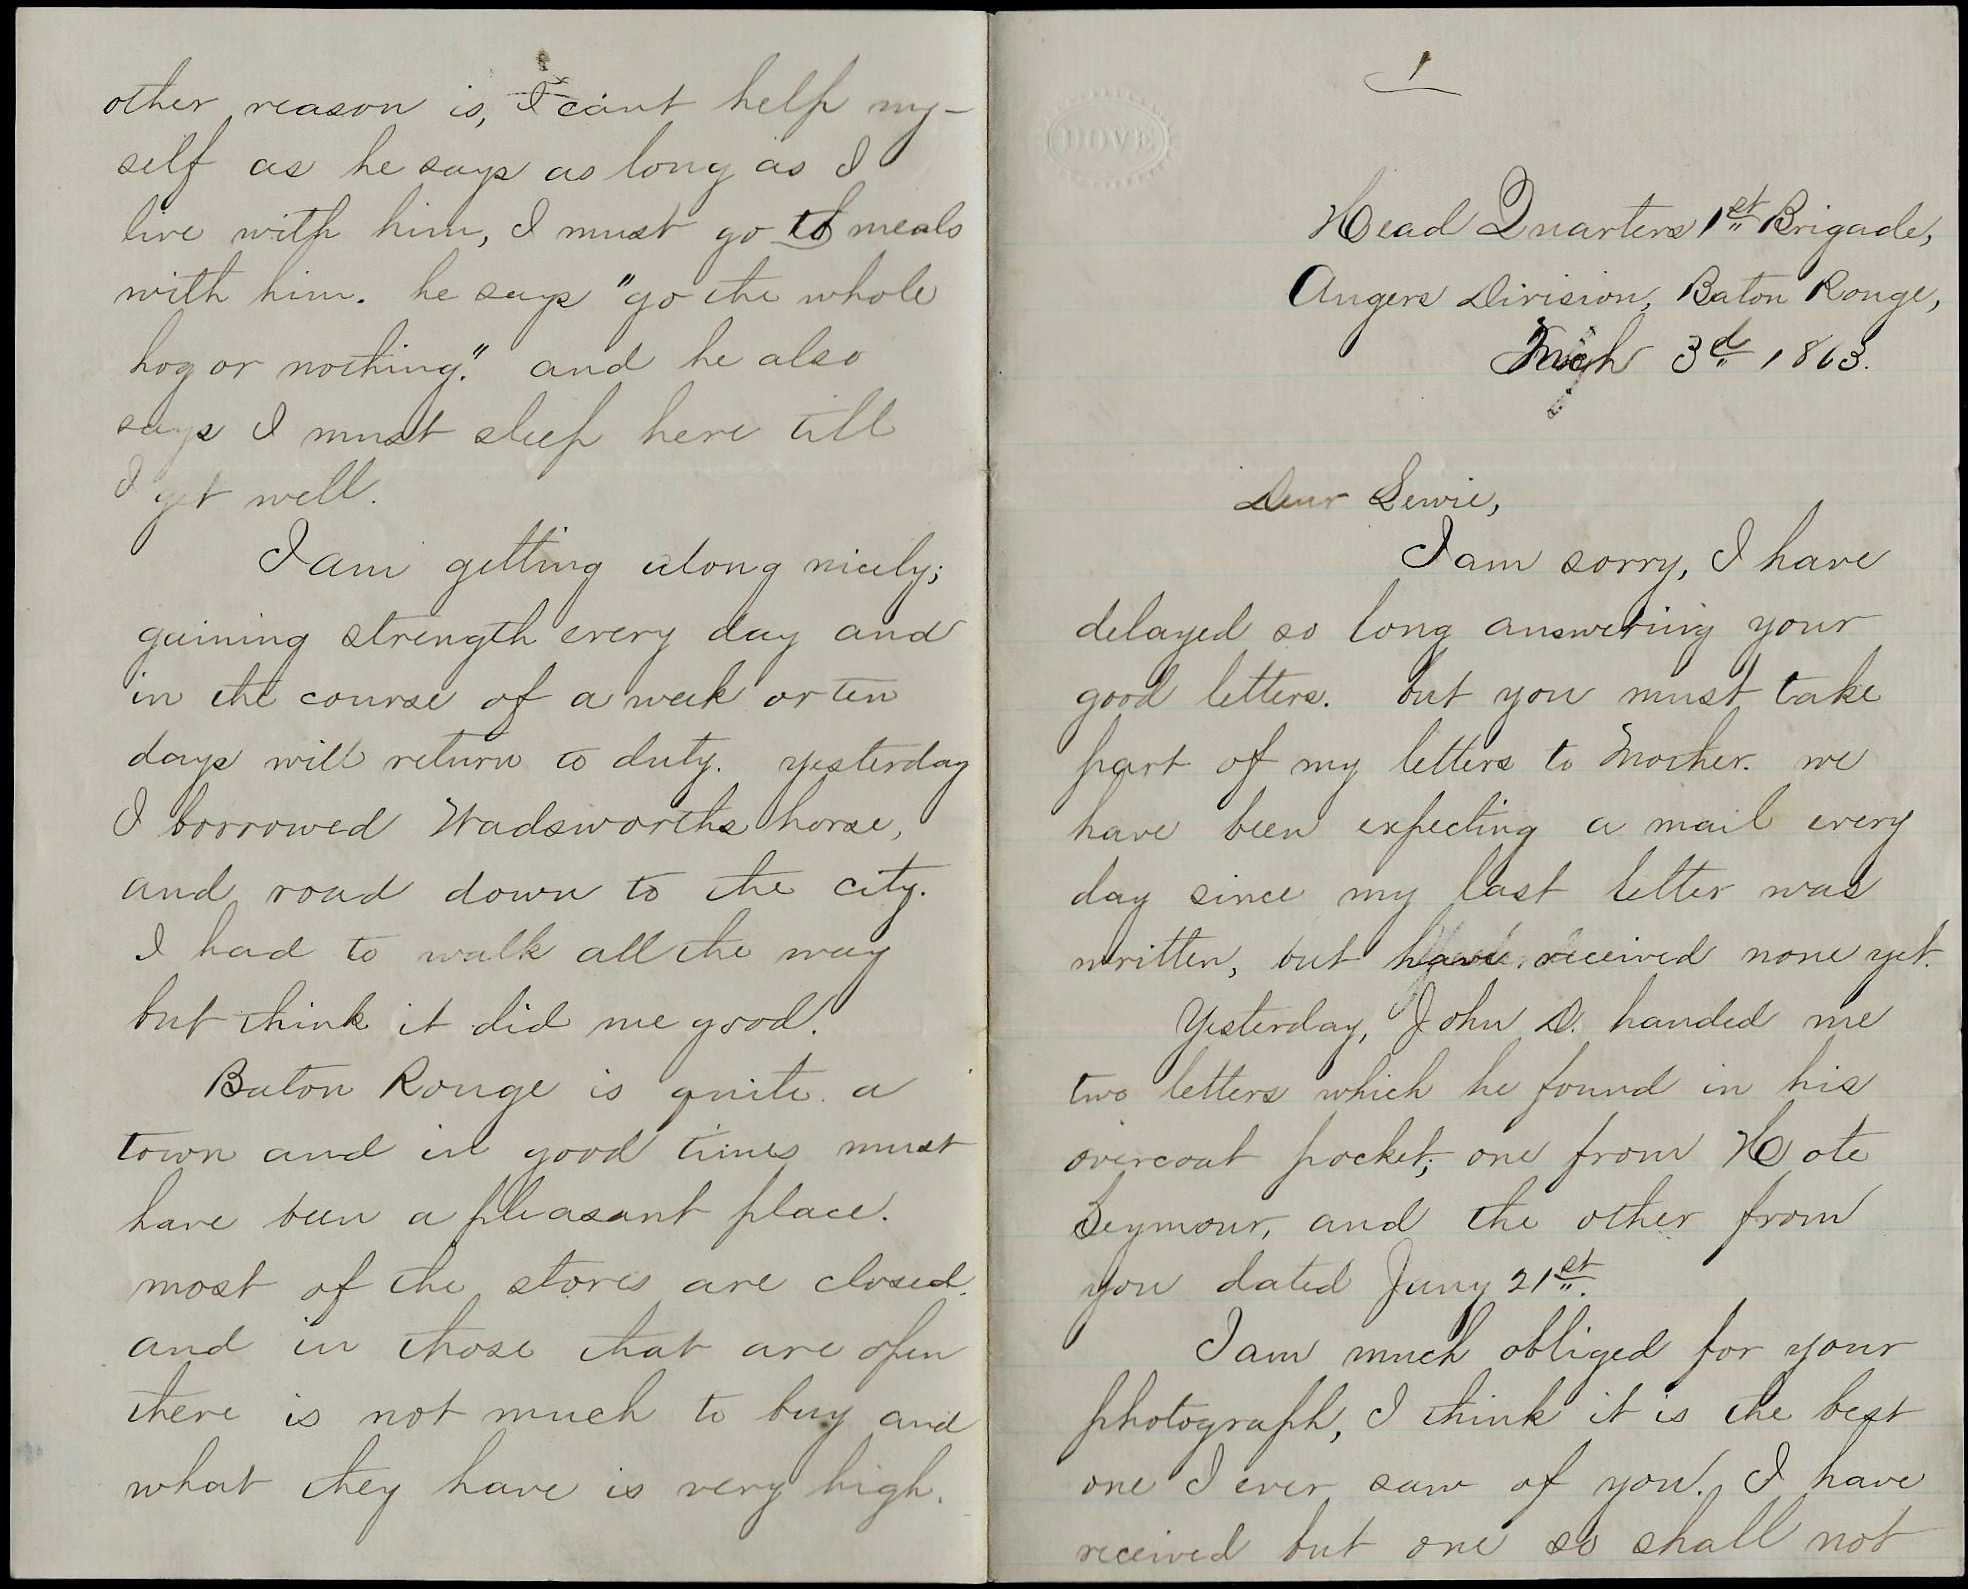 other reason is, I can't help my-
self as he says as long as I
live with him, I must go to meals
with him. he says "go the whole
hog or nothing." and he also
says I must sleep here till
I get well.
I am getting along nicely;
gaining strength every day and
in the course of a week or ten
days will return to duty. yesterday
I borrowed Wadsworths horse,
and road down to the city.
I had to walk all the way
but think it did me good.
Baton Rouge is quite a
town and in good times must
have been a pleasant place.
most of the stores are closed.
and in those that are open
there is not much to buy and
what they have is very high.
1
DOVE
Head Quarters 1st Brigade,
Augers Division, Baton Rouge,
Mch 3d 1863.
Dear Lewie,
I am sorry, I have
delayed so long answering your
good letters. but you must take
part of my letters to Mother. we
have been expecting a mail every
day since my last letter was
written, but have received none yet.
Yesterday, John D. handed me
two letters which he found in his
overcoat pocket; one from Hote
Seymour, and the other from
you dated Jany 21st.
I am much obliged for your
photograph, I think it is the best
one I ever saw of you. I have
received but one so shall not